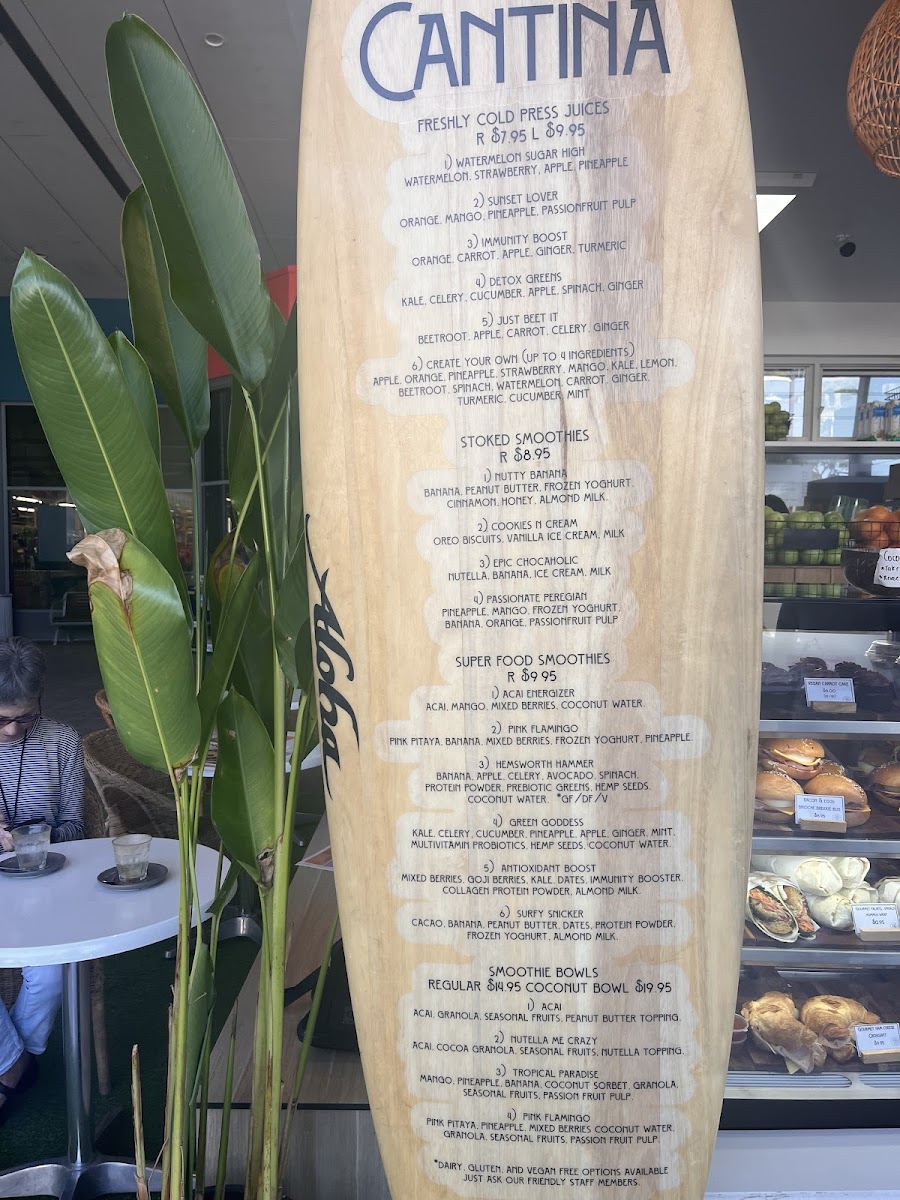 CANTINA
FRESHLY COLD PRESS JUICES
R $7.95 L $9.95
1) WATERMELON SUGAR HIGH
WATERMELON, STRAWBERRY, APPLE, PINEAPPLE
2) SUNSET LOVER
ORANGE, MANGO, PINEAPPLE, PASSIONFRUIT PULP
3) IMMUNITY BOOST
ORANGE, CARROT, APPLE, GINGER, TURMERIC
4) DETOX GREENS
KALE, CELERY, CUCUMBER, APPLE, SPINACH, GINGER
5) JUST BEET IT
BEETROOT, APPLE, CARROT, CELERY, GINGER
6) CREATE YOUR OWN (UP TO 4 INGREDIENTS)
APPLE, ORANGE, PINEAPPLE, STRAWBERRY, MANGO, KALE, LEMON,
BEETROOT, SPINACH, WATERMELON, CARROT, GINGER,
TURMERIC, CUCUMBER, MINT
STOKED SMOOTHIES
R $8.95
1) NUTTY BANANA
BANANA, PEANUT BUTTER, FROZEN YOGHURT,
CINNAMON, HONEY, ALMOND MILK.
2) COOKIES N CREAM
OREO BISCUITS, VANILLA ICE CREAM, MILK
3) EPIC CHOCAHOLIC
NUTELLA, BANANA, ICE CREAM, MILK
4) PASSIONATE PEREGIAN
PINEAPPLE, MANGO, FROZEN YOGHURT,
BANANA, ORANGE, PASSIONFRUIT PULP
SUPER FOOD SMOOTHIES
R $9.95
1) ACAI ENERGIZER
ACAI, MANGO, MIXED BERRIES, COCONUT WATER.
2) PINK FLAMINGO
PINK PITAYA, BANANA, MIXED BERRIES, FROZEN YOGHURT, PINEAPPLE.
3) HEMSWORTH HAMMER
BANANA, APPLE, CELERY, AVOCADO, SPINACH,
PROTEIN POWDER, PREBIOTIC GREENS, HEMP SEEDS,
COCONUT WATER. *GF/DF/V
4) GREEN GODDESS
KALE, CELERY, CUCUMBER, PINEAPPLE, APPLE, GINGER, MINT,
MULTIVITAMIN PROBIOTICS, HEMP SEEDS, COCONUT WATER.
5) ANTIOXIDANT BOOST
MIXED BERRIES, GOJI BERRIES, KALE, DATES, IMMUNITY BOOSTER,
COLLAGEN PROTEIN POWDER, ALMOND MILK.
6) SURFY SNICKER
CACAO, BANANA, PEANUT BUTTER, DATES, PROTEIN POWDER,
FROZEN YOGHURT, ALMOND MILK.
SMOOTHIE BOWLS
REGULAR $14.95 COCONUT BOWL $19.95
1) ACAI
ACAI, GRANOLA, SEASONAL FRUITS, PEANUT BUTTER TOPPING.
2) NUTELLA ME CRAZY
ACAI, COCOA GRANOLA, SEASONAL FRUITS, NUTELLA TOPPING.
3) TROPICAL PARADISE
MANGO, PINEAPPLE, BANANA, COCONUT SORBET, GRANOLA,
SEASONAL FRUITS, PASSION FRUIT PULP.
4) PINK FLAMINGO
PINK PITAYA, PINEAPPLE, MIXED BERRIES COCONUT WATER,
GRANOLA, SEASONAL FRUITS, PASSION FRUIT PULP.
*DAIRY, GLUTEN, AND VEGAN FREE OPTIONS AVAILABLE
JUST ASK OUR FRIENDLY STAFF MEMBERS.
Aloha
VEGAN CARROT CAKE
BACON & EGG
GOURMET HAM CHEESE
CROISSANT